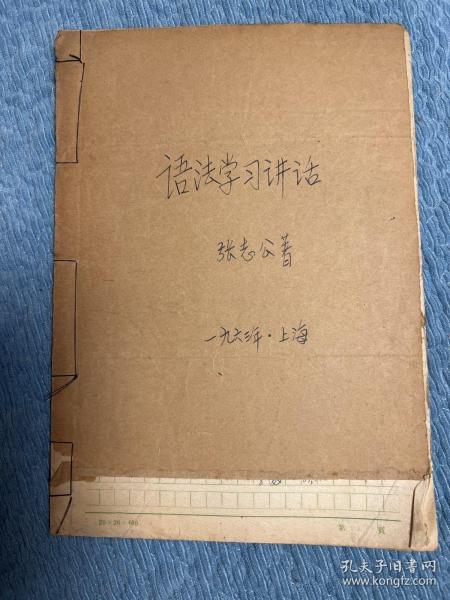 语法学习讲话
张志公著
一九六三年·上海
20×20=400
第 頁
孔夫子旧书网
www.kongfz.com